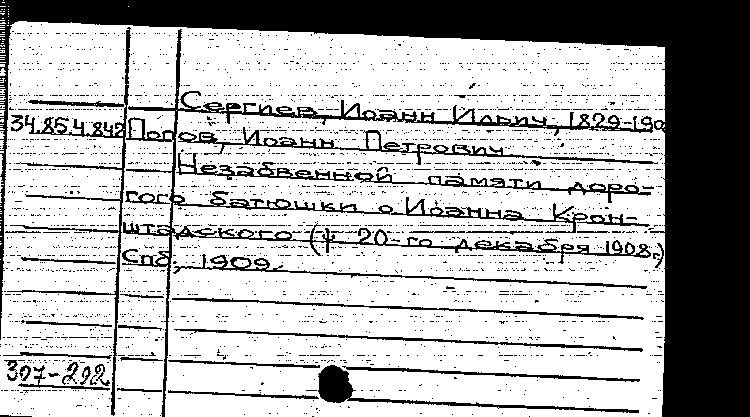 Сергиев, Иоанн Ильич, 1829-190
34.85.4.842 Попов, Иоанн Петрович
Незабвенной памяти доро-
гого батюшки о Иоанна Крон-
штадского (ѱ 20-го декабря 1908 г.)
Спб., 1909.
307-292